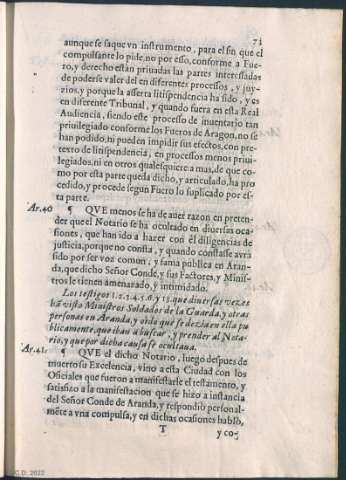 73
aunque se saque vn instrumento, para el fin que el
compulsante lo pide, no por esso, conforme a Fue-
ro, y derecho están priuadas las partes interessadas
de poderse valer del en diferentes processos, y juy-
zios, y porque la asserta litispendencia ha sido, y es
en diferente Tribunal, y quando fuera en esta Real
Audiencia, siendo este processo de inuentario tan
priuilegiado conforme los Fueros de Aragon, no se
han podido, ni pueden impidir sus efectos, con pre-
texto de litispendencia, en processos menos priui-
legiados, ni en otros qualesquiere a mas, de que co-
mo por esta parte queda dicho, y articulado, ha pro
cedido, y procede segun Fuero lo suplicado por es-
ta parte.
Ar. 40 ¶ QVE menos se ha de auer razon en preten-
der que el Notario se ha ocultado en diuersas oca-
siones, que han ido a hazer con èl diligencias de
justicia, porque no consta, y quando constasse avrá
sido por ser voz comun, y fama publica en Aran-
da, que dicho Señor Conde, y sus Factores, y Minis-
tros le tienen amenazado, y intimidado.
Los testigos 1.2.3.4.5.6. y 15. que diuersas vezes
hã visto Ministros Soldados de la Guarda, y otras
personas en Aranda, y oido que se dezia en ella pu
blicamente, que iban a buscar, y prender al Nota-
rio, y que por dicha causa se ocultaua.
Ar. 41. ¶ QVE el dicho Notario, luego despues de
muerto su Excelencia, vino a esta Ciudad con los
Oficiales que fueron a manifestarle el testamento, y
satisfizo a la manifestacion que se hizo a instancia
del Señor Conde de Aranda, y respondió personal-
mẽte a vna compulsa, y en dichas ocasiones habló,
T
y co-
C.D. 2022